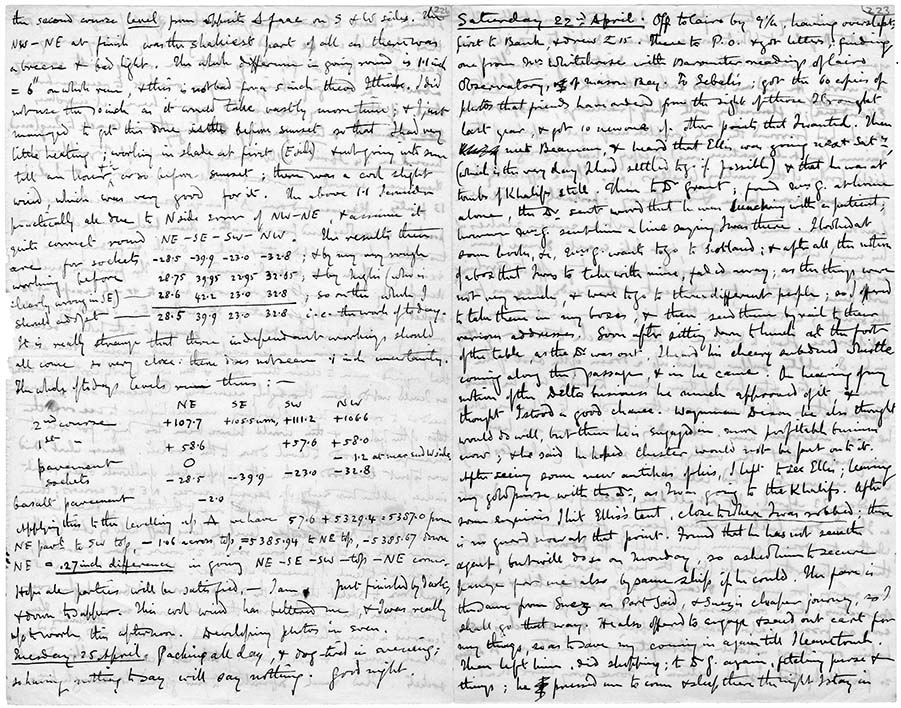 the second course level from opposite Δ face on S & W sides. The
NW–NE at finish was the shakiest part of all as there was
a breeze & bad light. The whole difference in going round is 1·1 inch
on whole run, & this is not bad for a 5 inch theod I think. I did
not use the 10 inch as it would take vastly more time; & I just
managed to get this done before sunset, so that I had very
little heating; working in shade at first (E side) & not going into sun
till an hour or so before sunset; there was a cool slight
wind, which was very good for it. The above 1·1 I consider
practically all due to N side error of NW–NE, & assume it
quite correct round NE–SE–SW–NW. The results then
are for sockets –28·5 –39·9 –23·0 –32·8; & by my very rough
working before 28·75 39·95 22·95 32·85; & by Inglis (who is
clearly wrong in SE) — 28·6 42·2 23·0 32·8; so on the whole I
should adopt — 28·5 39·9 23·0 32·8 i.e. the work of today.
It is really strange that these independent workings should
all come so very close: there does not seem ¼ inch uncertainty.
The whole of todays levels run thus:—
NE SE SW NW
2nd course +107·7 +105·5 +111·2 +106·6
1st " +58·6 +57·6 +58·0
–1·2 at near end W side
pavement 0
sockets –28·5 –39·9 –23·0 –32·8
basalt pavement –2·0
Applying this to the levelling up Δ we have 57·6 + 5329·4 = 5387·0 from
NE pavt to SW top, –1·06 across top, = 5385·94 to NE top, –5385·67 down
NE = .27 inch difference in going NE–SE–SW–top–NE corner.
Hope all parties will be satisfied,— I am. Just finished by dark,
& down to supper. This cool wind has bettered me, & I was really
up to work this afternoon. Developing photos in even.
Tuesday 25 April. Packing all day, & dog-tired in evening;
so having nothing to say will say nothing. Good night.
223
Saturday 22nd April. Off to Cairo by 9¼, having overslept.
First to Bank, & drew £15. Then to P.O. & got letters; finding
one from Mrs Whitehouse with Barometer readings of Cairo
Observatory, Then to Sebah's; got the 60 copies of
photos that friends have ordered from the sight of those I brought
last year, & got 10 new ones of other points that I wanted. Then
met Beauman, & heard that Ellis was going next Saty
(which is the very day I had settled to go if possible) & that he was at
tombs of Khalifs still. Then to Dr Grant; found Mrs G. at home
alone, the Dr. sent word that he was lunching with a patient;
however Mrs G. sent him a line saying I was there. I looked at
some books, &c. Mrs G. wants to go to Scotland; & after all the
of a box that I was to take with mine, faded away; as the things were
not very much, & were to go to three different people; so I offered
to take them in my boxes, & then send them by rail to their
various addresses. Soon after sitting down to lunch at the foot
of the table, as the Dr was out, I heard his cheery subdued whistle
coming along the passage, & in he came. On hearing of my
notion of the Delta business he much approved of it, &
thought I stood a good chance. Waynman Dixon he also thought
would do well, but then he is engaged in more profitable business
now; & he said he hoped Chester would not be put on to it.
After seeing some new antikas of his, I left to see Ellis; leaving
my gold purse with the Dr., as I was going to the Khalifs. After
some enquiries I hit Ellis's tent, close to where I was robbed; there
is no guard now at that point. Found that he has not seen the
agent, but will do so on Monday, so asked him to secure
passage for me also by same ship, if he could. The fare is
the same from Suez or Port Said, & Suez is cheaper journey, so I
shall go that way. He also offered to engage & send out a cart for
my things, so as to save my coming in again till I leave.
Then left him. did shopping; to Dr G. again, fetching purse &
things; he pressed me to come & sleep there the night I stay in